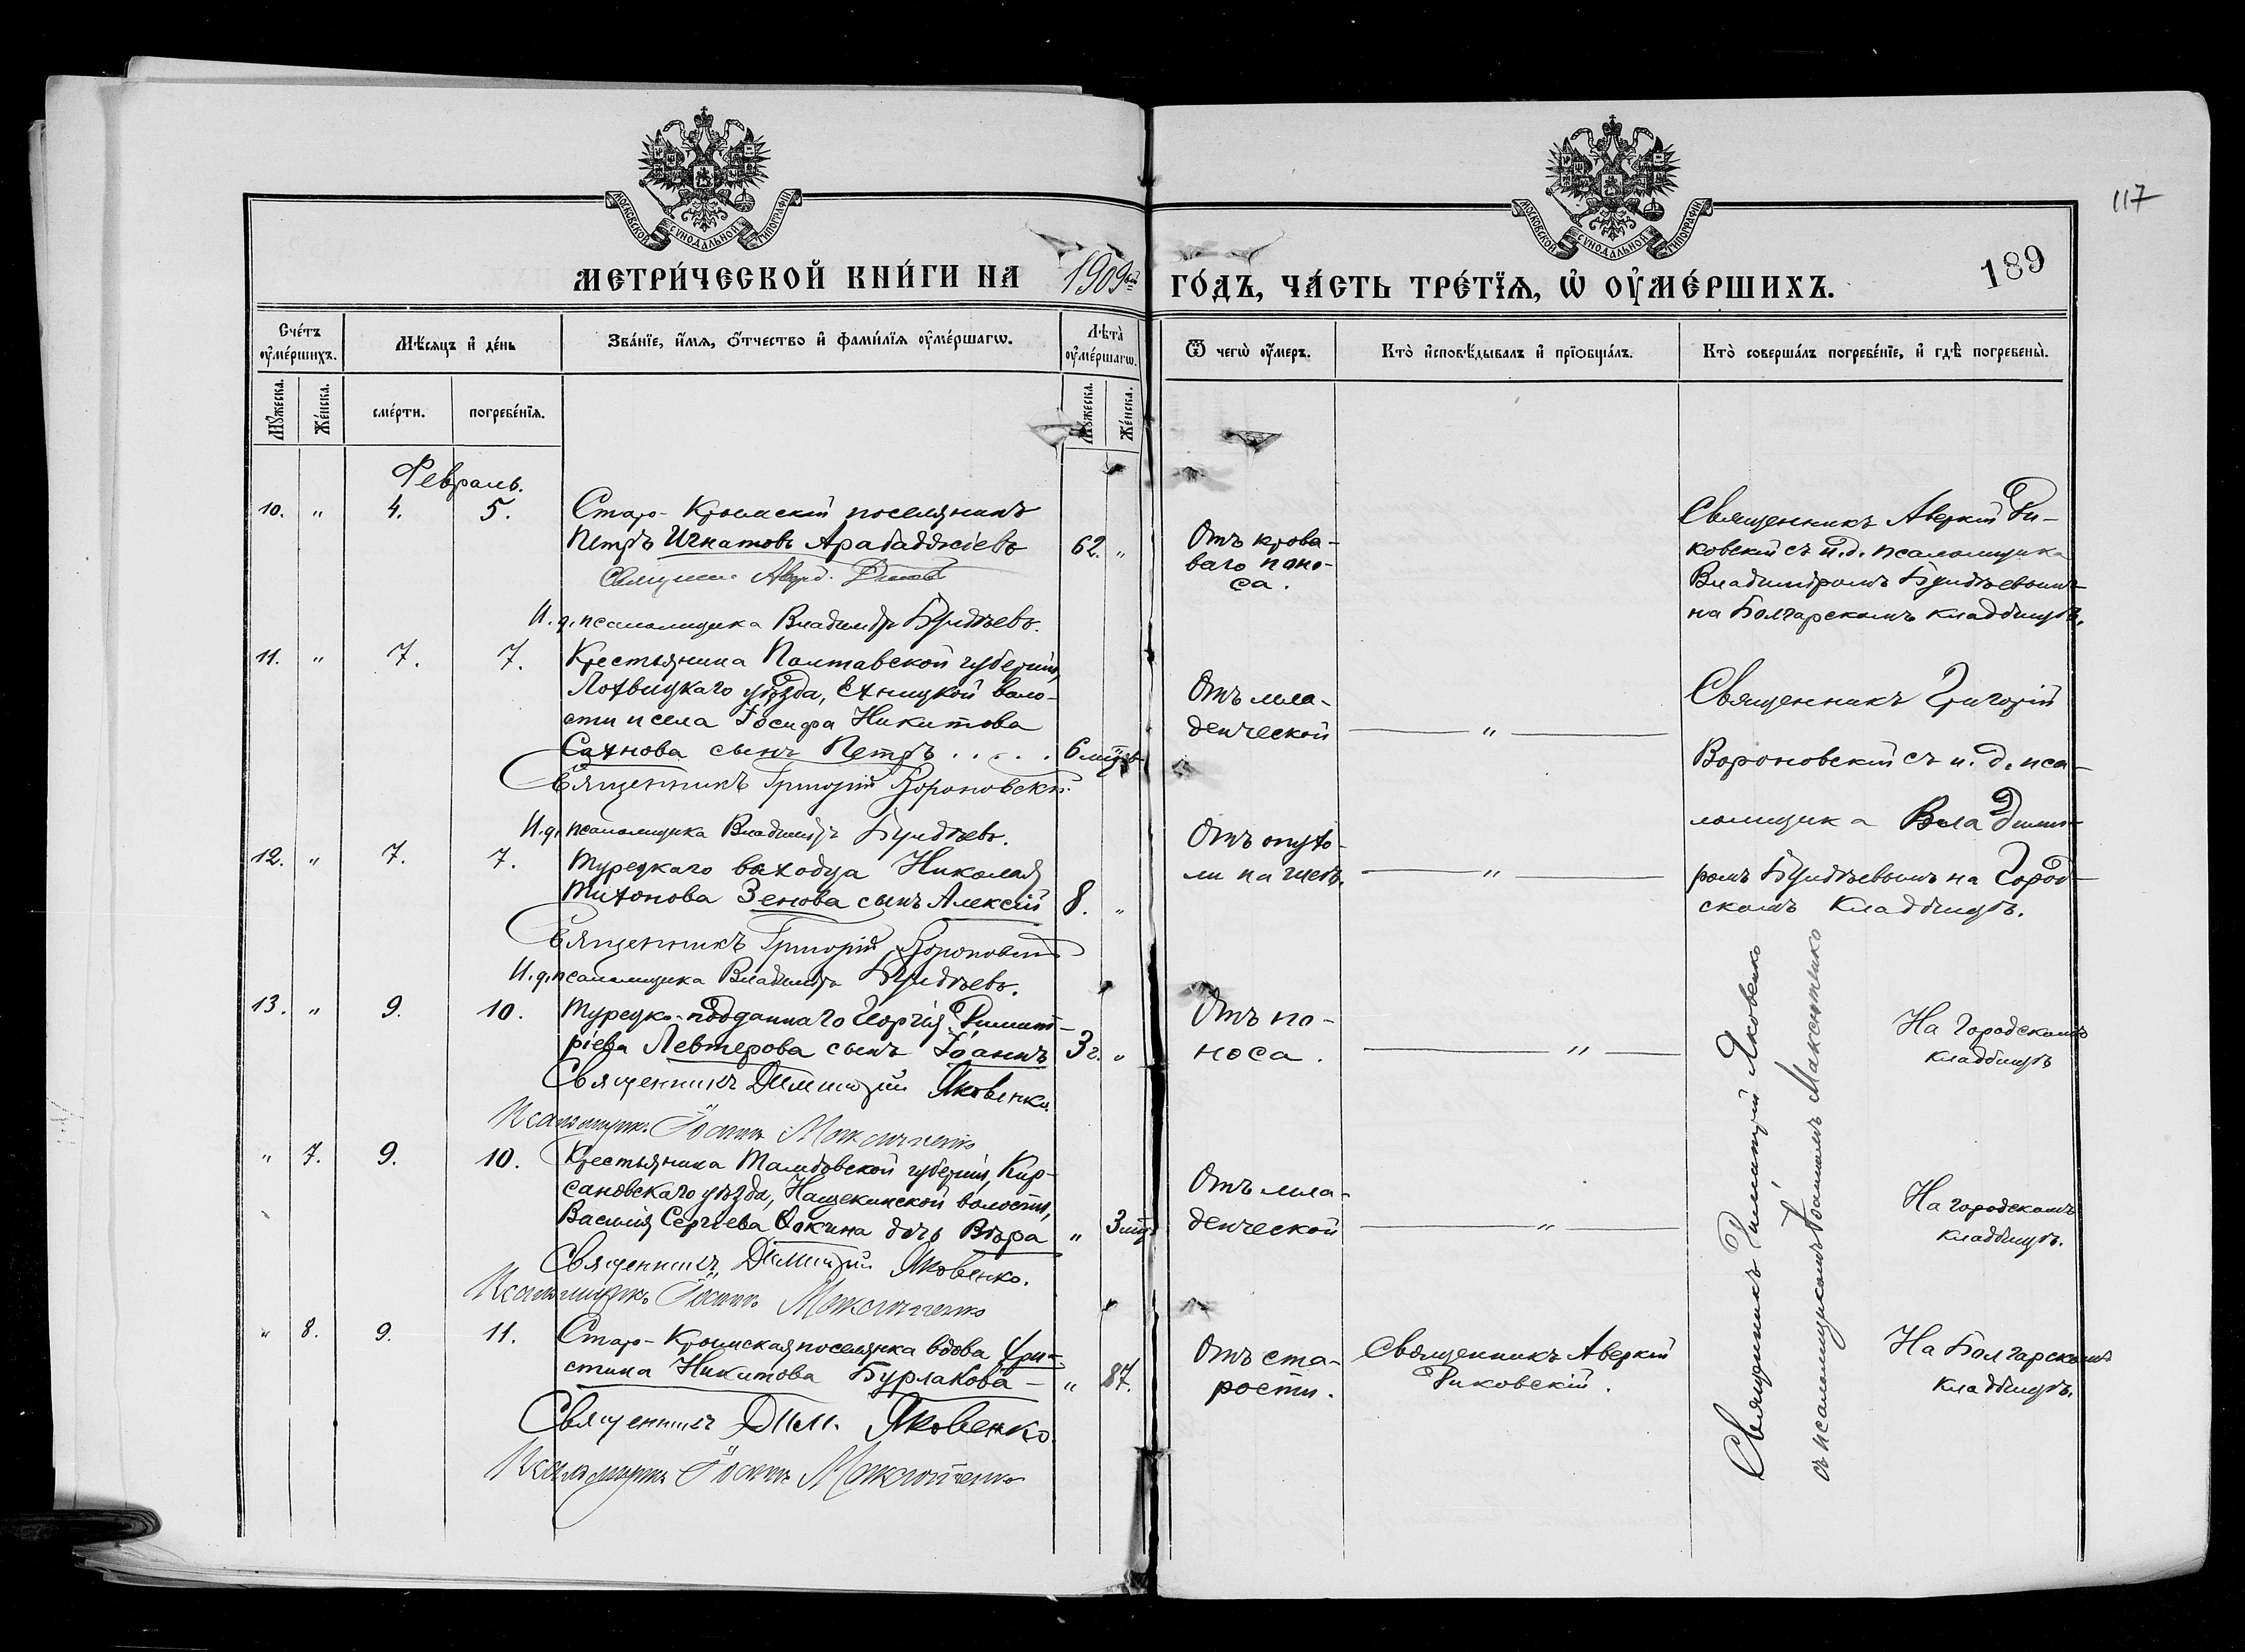 117
189
МОСКОВСКОЙ СѴНОДАЛЬНОЙ ТИПОГРАФІИ
МОСКОВСКОЙ СѴНОДАЛЬНОЙ ТИПОГРАФІИ
МЕТРИ́ЧЕСКОЙ КНИ́ГИ НА 1909 ГО́ДЪ, ЧА́СТЬ ТРЕ́ТЇѦ, Ѡ҆ ОУ҆МЕ́РШИХЪ.
Сче́тъ оу҆ме́ршихъ.
Мѣ́сяцъ и҆ де́нь
Зва́нїе, и҆́мѧ, ѻ҆́тчество и҆ фами́лїѧ оу҆ме́ршагѡ.
Лѣта̀ оу҆ме́ршагѡ.
Ѿ чегѡ̀ оу҆́меръ.
Кто̀ и҆сповѣ́дывалъ и҆ прїѡбща́лъ.
Кто̀ соверша́лъ погребе́нїе, и҆ гдѣ̀ погребены̀.
Мꙋ́жеска.
Же́нска.
сме́рти.
погребе́нїѧ.
Мꙋ́жеска.
Же́нска.
Февраль.
10. " 4. 5. Старо-Крымскій поселянинъ
Петръ Игнатовъ Арабаджіевъ 62. "
И.д. псаломщика Владиміръ Бундѣевъ.
Отъ крова-
ваго поно-
са.
Священникъ Аверкій Ди-
ковскій съ и.д. псаломщика
Владиміромъ Бундѣевымъ
на Болгарскомъ кладбищѣ.
11. " 7. 7. Крестьянина Полтавской губерніи,
Лохвицкаго уѣзда, Сѣницкой воло-
сти и села Іосифа Никитова
Сахнова сынъ Петръ . . . . . 6 мцѣв
Священникъ Григорій Вороновскій.
И.д. псаломщика Владиміръ Бундѣевъ.
Отъ мла-
денческой
"
Священникъ Григорій
Вороновскій съ и. д. пса-
ломщика Владими-
ромъ Бундѣевымъ на Город-
скомъ кладбищѣ.
12. " 7. 7. Турецкаго выходца Николая
Тихонова Зенова сынъ Алексій 8. "
Священникъ Григорій Вороновскій
И.д. псаломщика Владиміръ Бундѣевъ.
Отъ опухо-
ли на шеѣ.
"
13. " 9. 10. Турецко-подданнаго Георгія Димит-
ріева Левтерова сынъ Іоаннъ 3 г. "
Священникъ Димитрій Яковенко.
Псаломщикъ Іоаннъ Максютенко
Отъ по-
носа.
"
На Городскомъ
кладбищѣ
" 7. 9. 10. Крестьянина Тамбовской губерніи, Кир-
сановскаго уѣзда, Нащекинской волости,
Василія Сергѣева Фокина дочь Вѣра " 3 мц
Священникъ Димитрій Яковенко.
Псаломщикъ Іоаннъ Максютенко
Отъ мла-
денческой
"
На городскомъ
кладбищѣ.
" 8. 9. 11. Старо-Крымская поселянка вдова Хри-
стина Никитова Бурлакова " 87.
Священникъ Дим. Яковенко.
Псаломщикъ Іоаннъ Максютенко
Отъ ста-
рости.
Священникъ Аверкій
Диковскій.
На Болгарскомъ
кладбищѣ.
Священникъ Димитрій Яковенко
съ псаломщикомъ Іоанномъ Максютенко